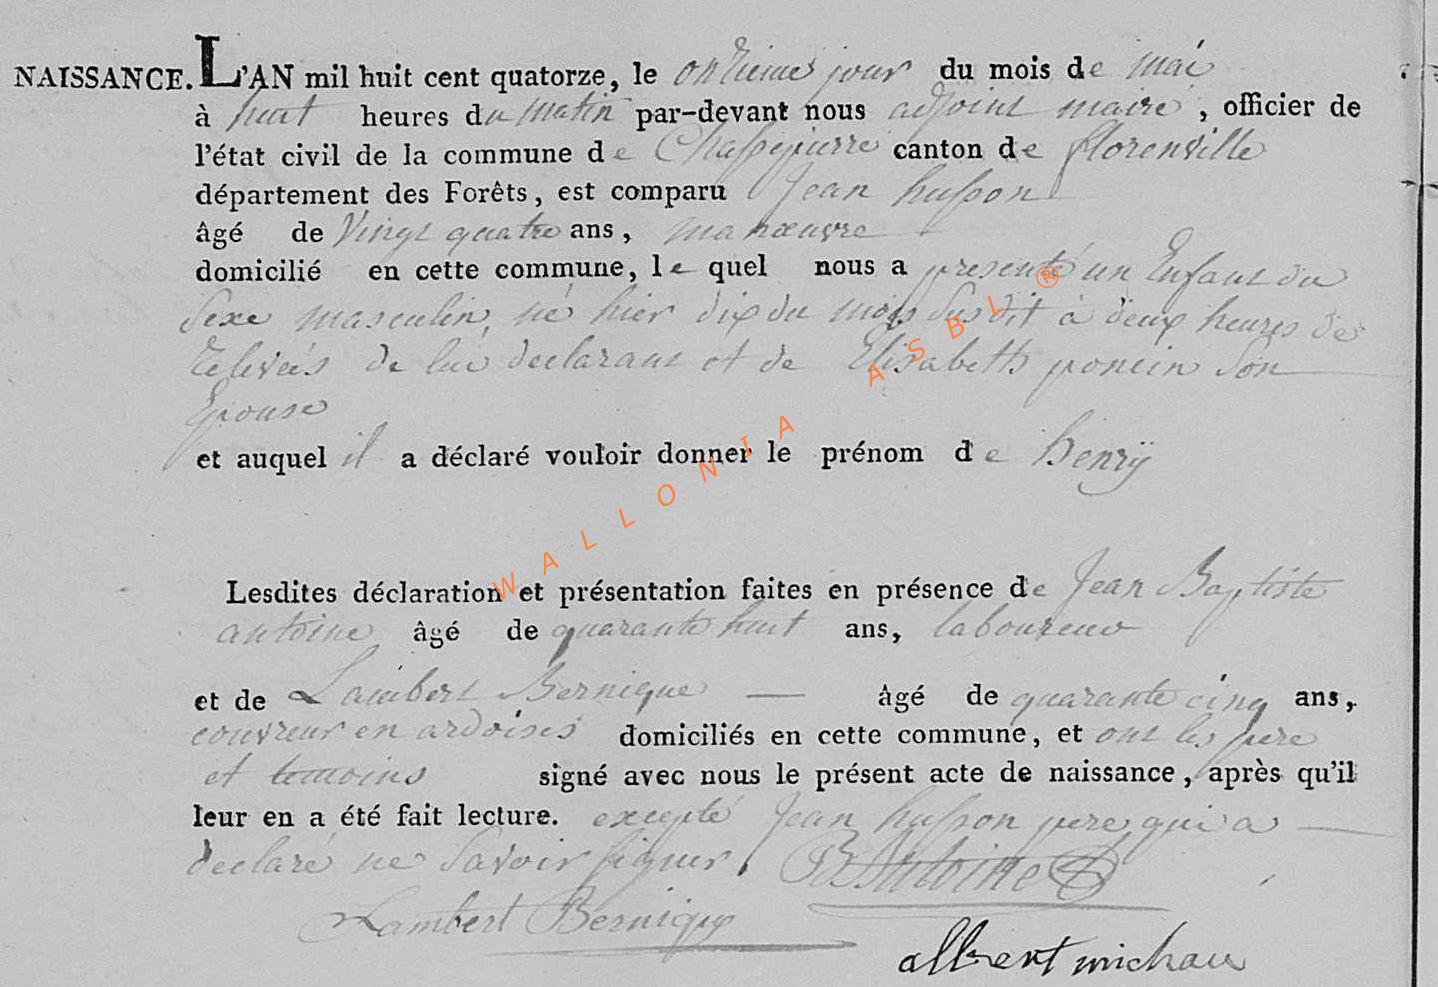 NAISSANCE. L'AN mil huit cent quatorze, le onzieme jour du mois de mai
à huit heures du matin par-devant nous adjoint maire, officier de
l'état civil de la commune de Chassepierre canton de florenville
département des Forêts, est comparu Jean husson
âgé de Vingt quatre ans, manœuvre
domicilié en cette commune, le quel nous a presenté un Enfant du
Sexe masculin, né hier dix du mois Susdit à deux heures de
relevées de lui declarant et de Elisabeth poncin Son
Epouse
et auquel il a déclaré vouloir donner le prénom de henrÿ
Lesdites déclaration et présentation faites en présence de Jean Baptiste
antoine âgé de quarante huit ans, laboureur
et de Lambert Bernique — âgé de quarante cinq ans,
couvreur en ardoises domiciliés en cette commune, et ont les pere
et temoins signé avec nous le présent acte de naissance, après qu'il
leur en a été fait lecture. excepté Jean husson pere qui a —
declaré ne Savoir signer. JB Antoine
Lambert Bernique
albert michau
WALLONIA ASBL ®